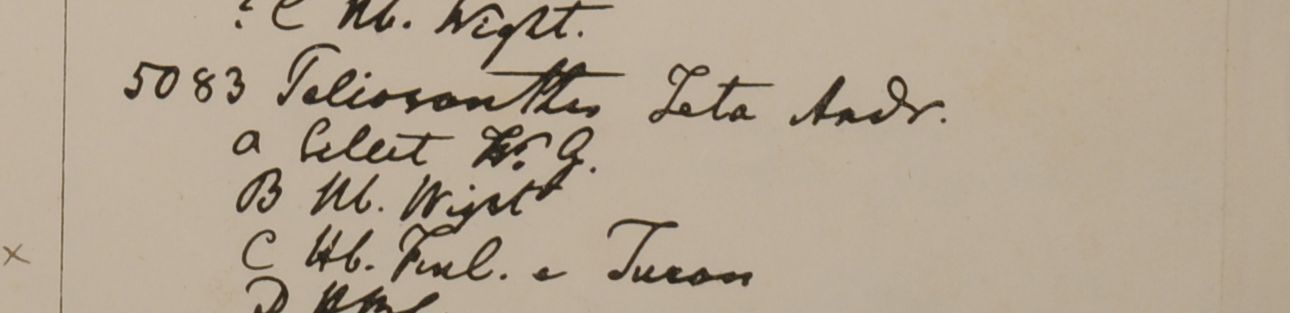 ? C Hb. Wight.
5083 Peliosanthes Teta Andr.
a Silhet W. G.
B Hb. Wight
C Hb. Finl. e Turon
D